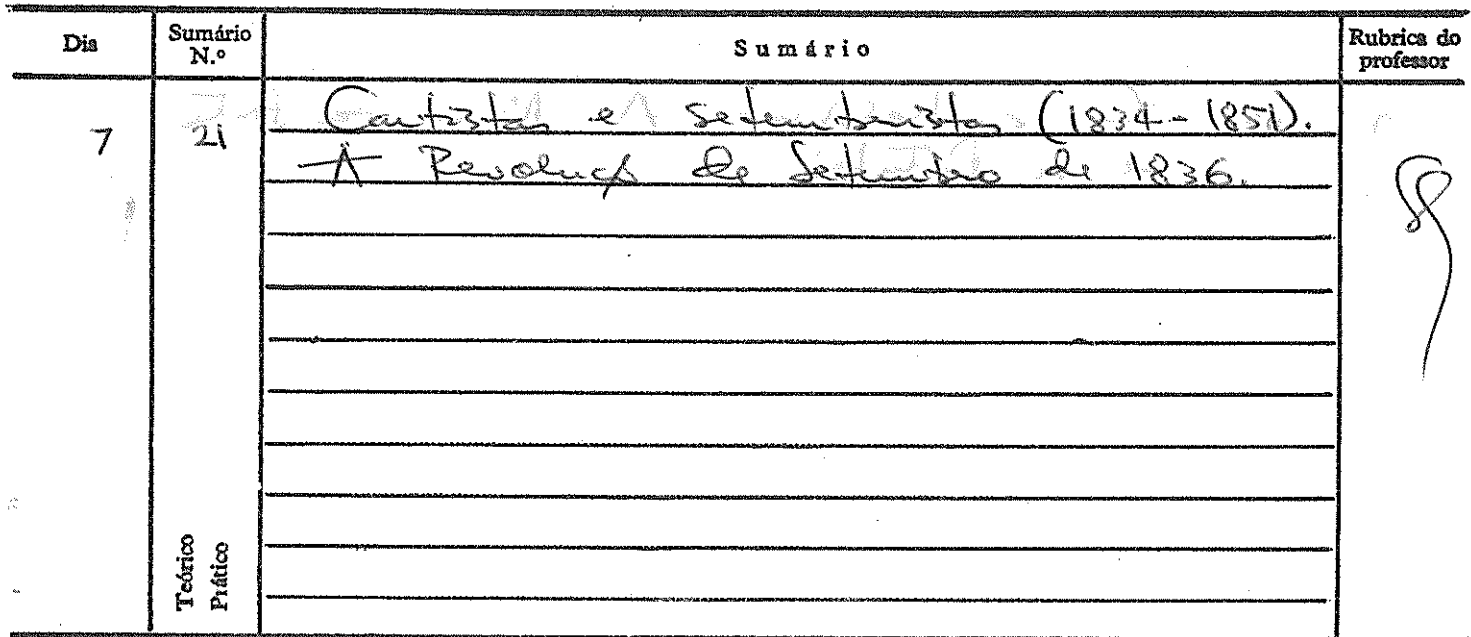 Dia Sumário N.º Sumário Rubrica do professor
7 21 Cartistas e setembristas (1834-1851).
A Revolução de Setembro de 1836.
Teórico
Prático